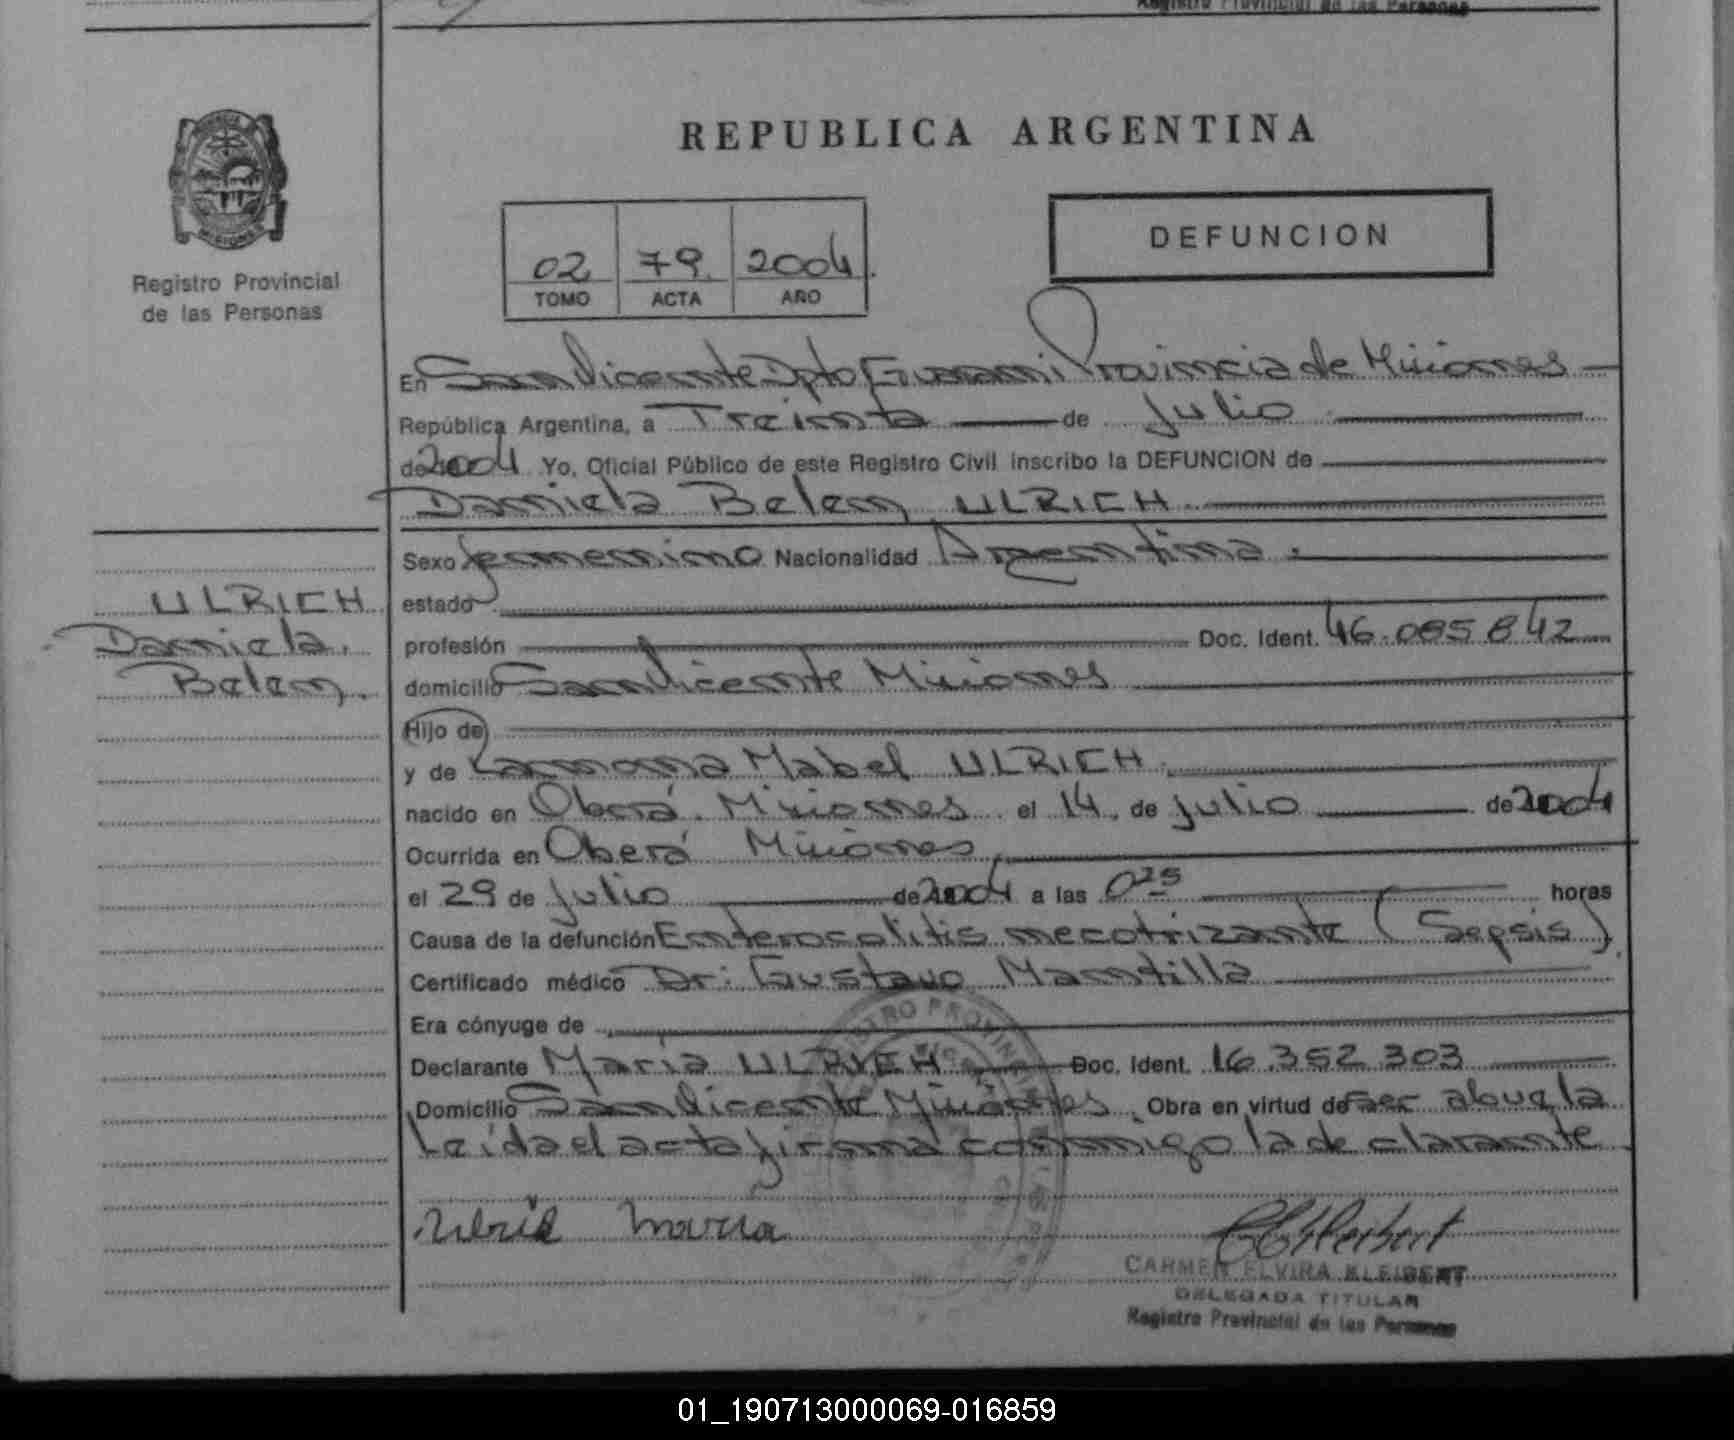 Registro Provincial de las Personas
REPUBLICA ARGENTINA
MISIONES
Registro Provincial
de las Personas
02 79 2004
TOMO ACTA AÑO
DEFUNCION
En San Vicente Dpto Guarani Provincia de Misiones
República Argentina, a Treinta de Julio
de 2004 Yo, Oficial Público de este Registro Civil inscribo la DEFUNCION de
Daniela Belen ULRICH
ULRICH
Daniela
Belen
Sexo femenino Nacionalidad Argentina
estado
profesión Doc. Ident. 46.085.842
domicilio San Vicente Misiones
Hijo de
y de Ramona Mabel ULRICH
nacido en Oberá Misiones el 14 de Julio de 2004
Ocurrida en Oberá Misiones
el 29 de Julio de 2004 a las 0 25 horas
Causa de la defunción Enterocolitis necotrizante (Sepsis)
Certificado médico Dr: Gustavo Mantilla
Era cónyuge de
Declarante Maria ULRICH Doc. Ident. 16.352.303
Domicilio San Vicente Misiones. Obra en virtud de ser abuela
Leida el acta firma conmigo la declarante
Ulrich maria
CARMEN ELVIRA KLEIBERT
DELEGADA TITULAR
Registro Provincial de las Personas
01_190713000069-016859